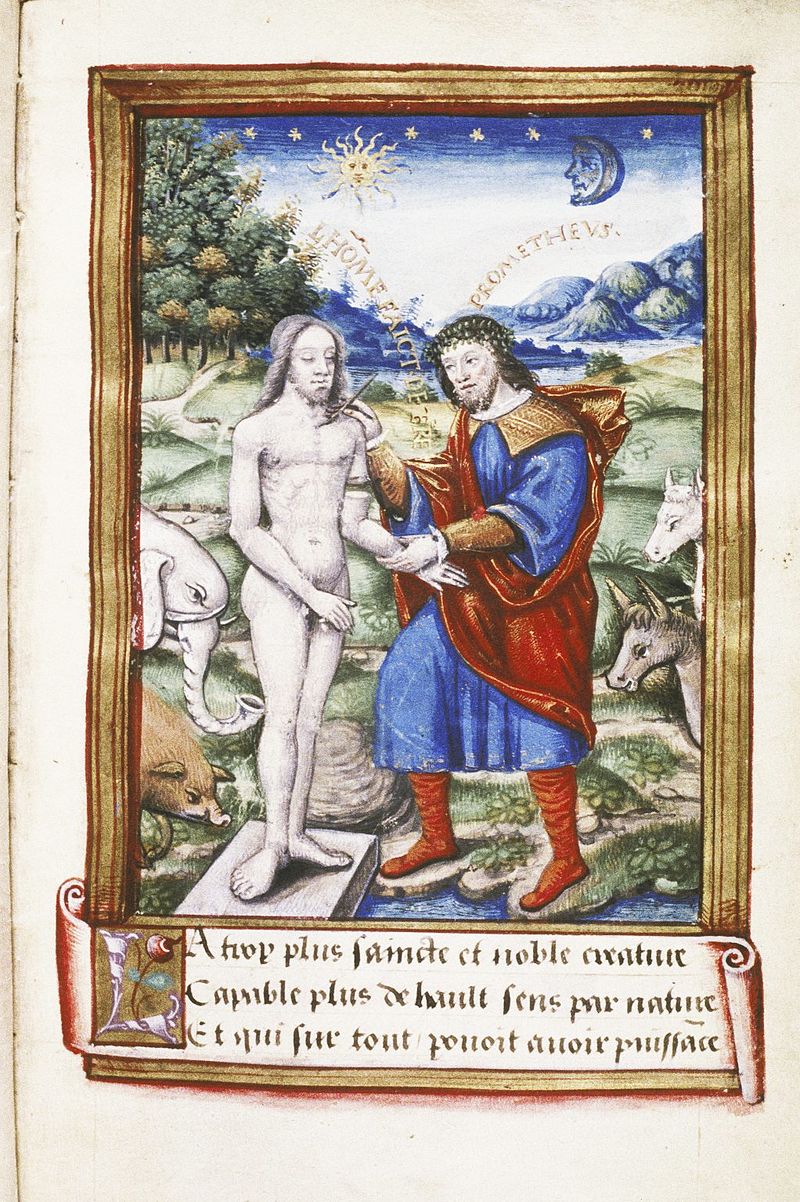 L'HOMME FAICT DE TERE
PROMETHEVS.
LA trop plus saincte et noble creature
Capable plus de hault sens par nature
Et qui sur tout pouoit auoir puissāce